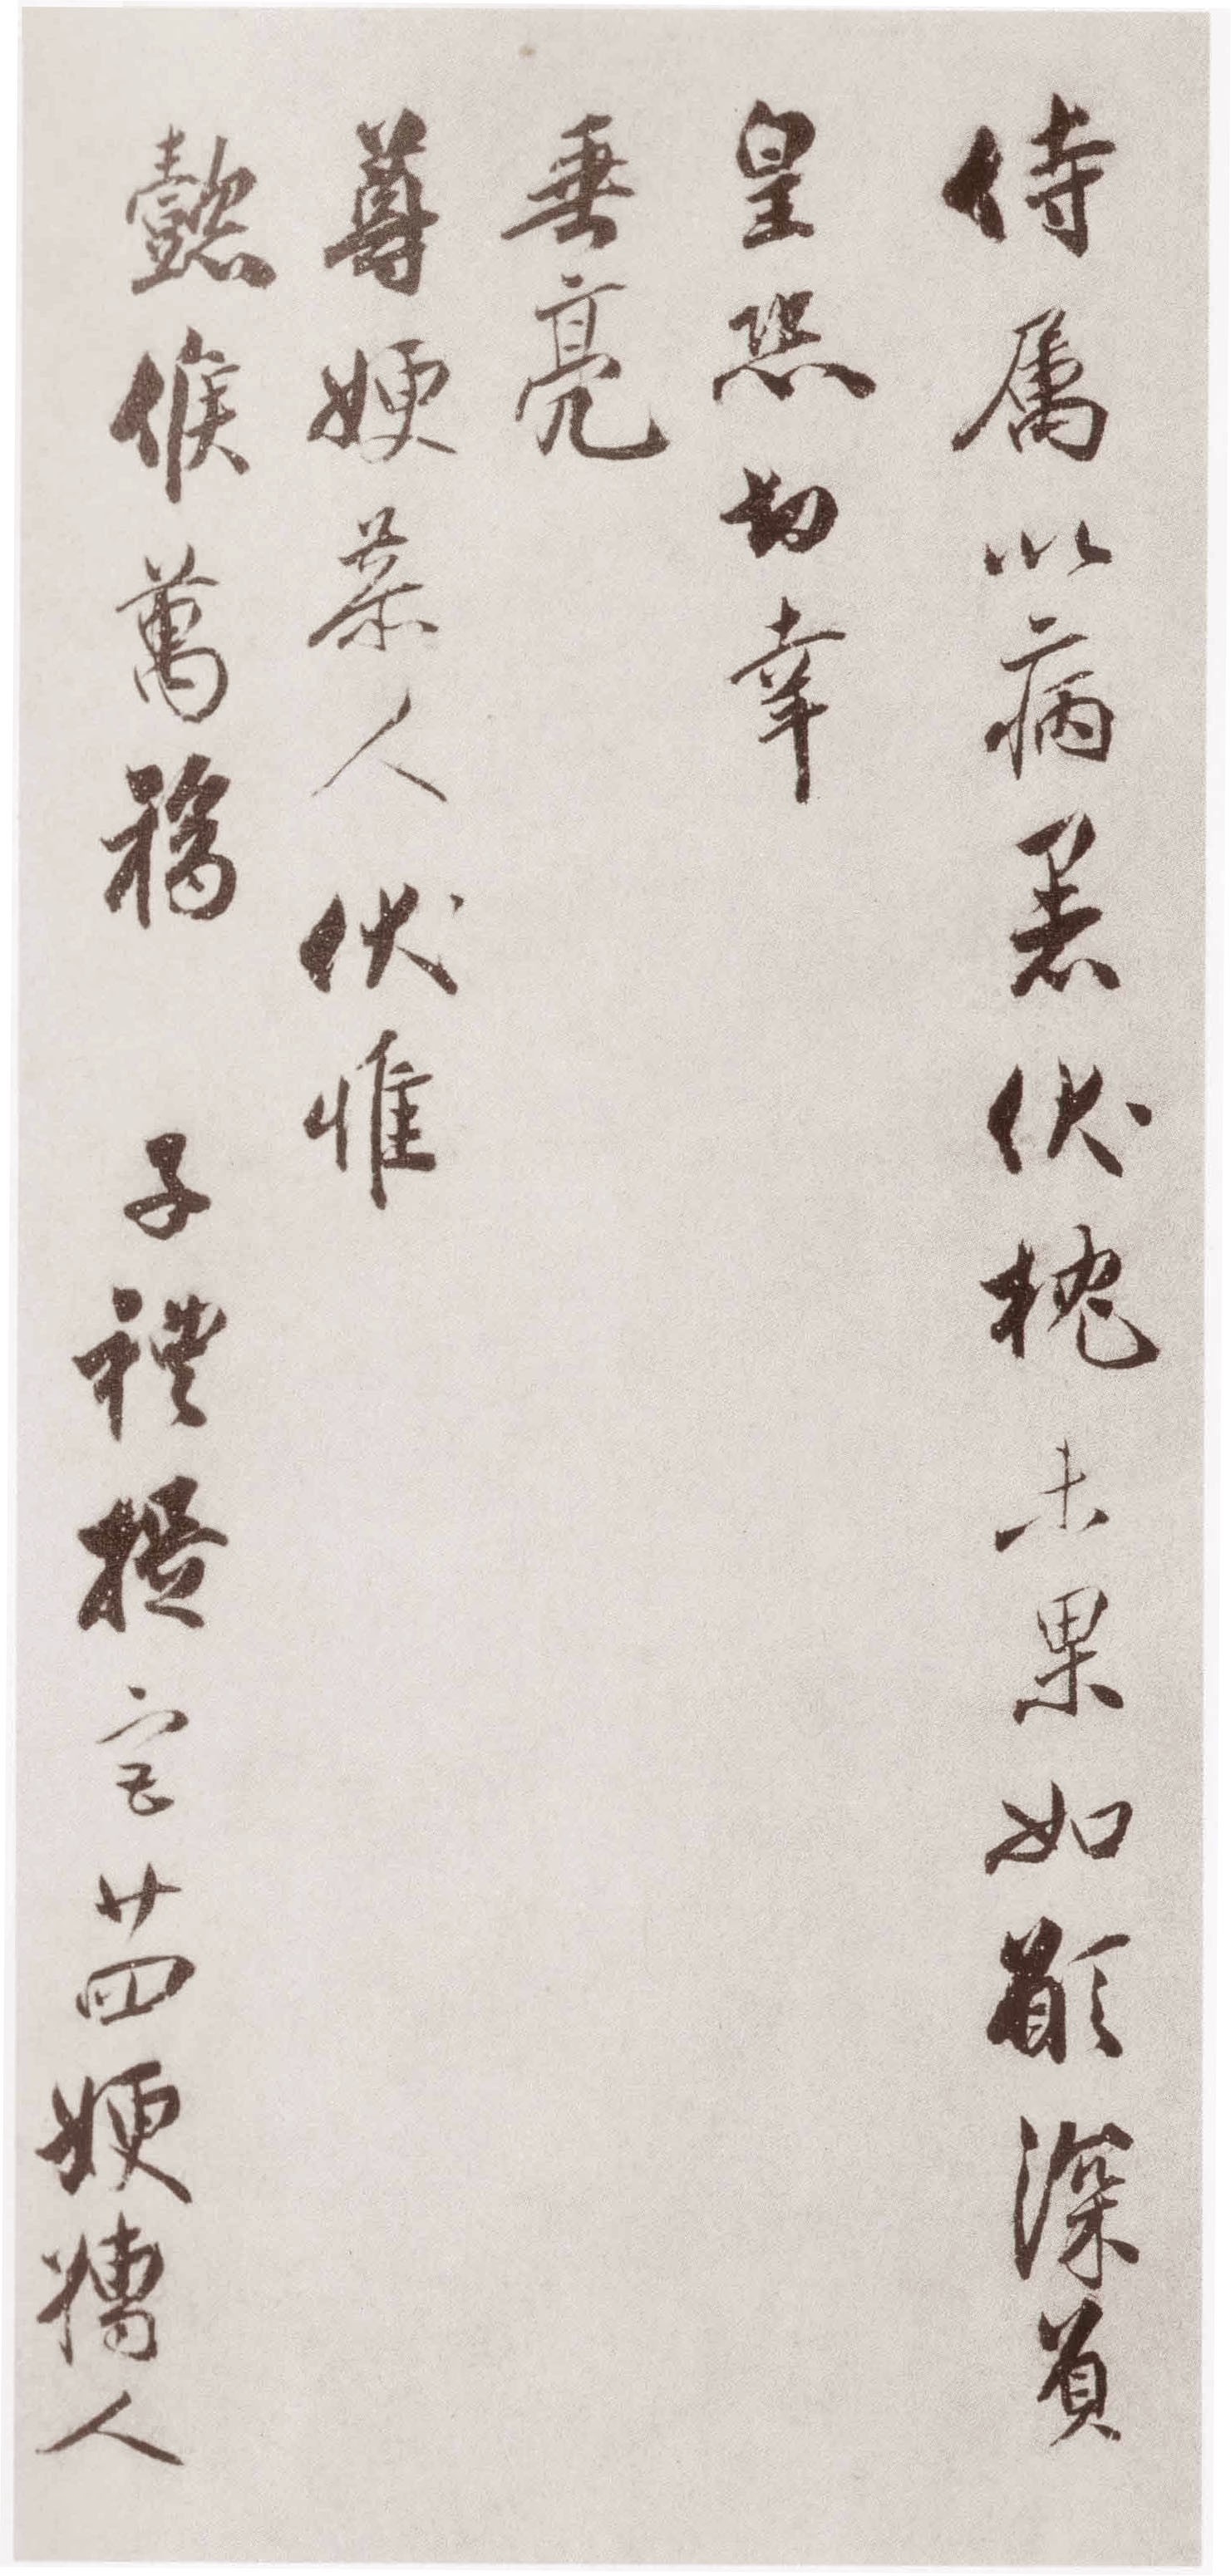 侍属以病恙伏枕未果如願深負
皇恐切幸
垂亮
尊嫂恭人伏惟
懿候萬福 子禮提宮廿四嫂孺人